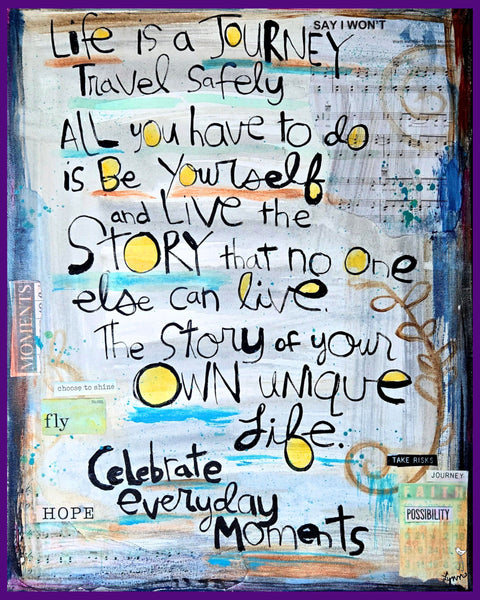 SAY I WON'T
Life is a JOURNEY
Travel Safely
ALL you have to do
is Be Yourself
and LIVE the
STORY that no One
else can live.
The Story of your
OWN unique
Life.
Celebrate
everyday
Moments
MOMENTS
choose to shine.
fly
HOPE
TAKE RISKS
JOURNEY
FAITH
POSSIBILITY
Lynn